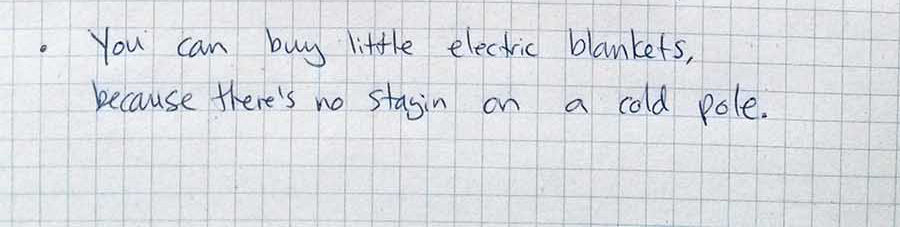 • You can buy little electric blankets,
because there's no stayin on a cold pole.